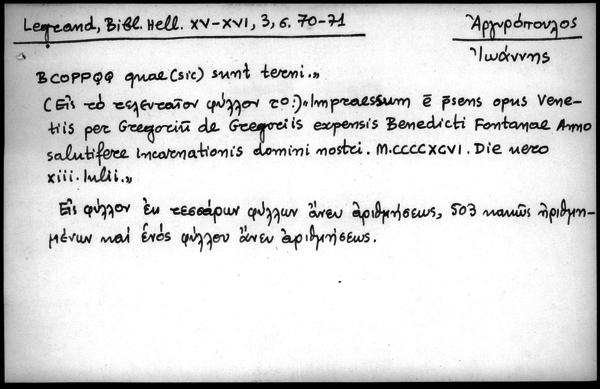 Legrand, Bibl. Hell. XV-XVI, 3, σ. 70-71
Ἀργυρόπουλος
Ἰωάννης
BCOPPQQ quae (sic) sunt terni.»
(Εἰς τὸ τελευταῖον φύλλον το:) «Impraessum ē p̄sens opus Vene-
tiis per Gregoriū de Gregoriis expensis Benedicti Fontanae Anno
salutifere incarnationis domini nostri. M.CCCCXCVI. Die uero
xiii. Iulii.»
Εἰς φύλλον ἐκ τεσσάρων φύλλων ἄνευ ἀριθμήσεως, 503 κακῶς ἠριθμη-
μένων καὶ ἑνὸς φύλλου ἄνευ ἀριθμήσεως.